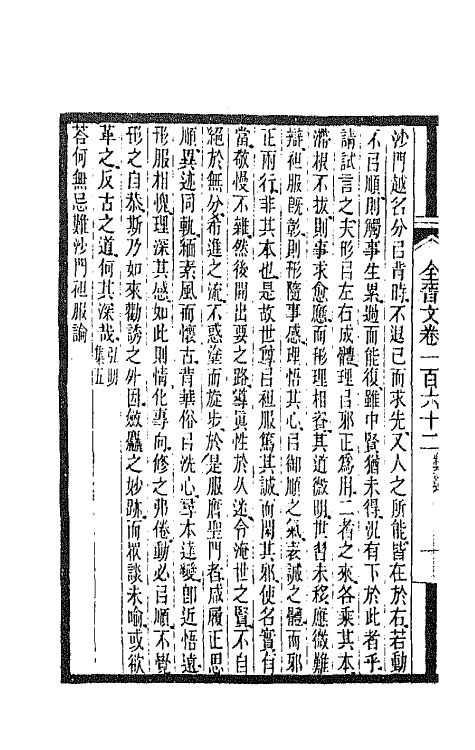 全晉文卷一百六十二 釋氏 十
沙門越名分㠯背時不退己而求先又人之所能皆在於右若動
不㠯順則觸事生累過而能復雖中賢猶未得況有下於此者乎
請試言之夫形㠯左右成體理㠯邪正爲用二者之來各乘其本
滯根不拔則事求愈應而形理相資其道微明世習未移應微難
辯袒服旣彰則形隨事感理悟其心㠯御順之氣表誠之體而邪
正兩行非其本也是故世尊㠯袒服篤其誠而閑其邪使名實有
當敬慢不雜然後開出要之路導眞性於久迷令淹世之賢不自
絕於無分希進之流不惑塗而旋步於是服膺聖門者咸履正思
順異迹同軌緬素風而懷古背華俗㠯洗心尋本達變卽近悟遠
形服相愧理深其感如此則情化專向修之弗倦動必㠯順不覺
形之自恭斯乃如來勸誘之外因斂麤之妙跡而眾談未喻或欲
革之反古之道何其深哉弘明集五
荅何無忌難沙門袒服論